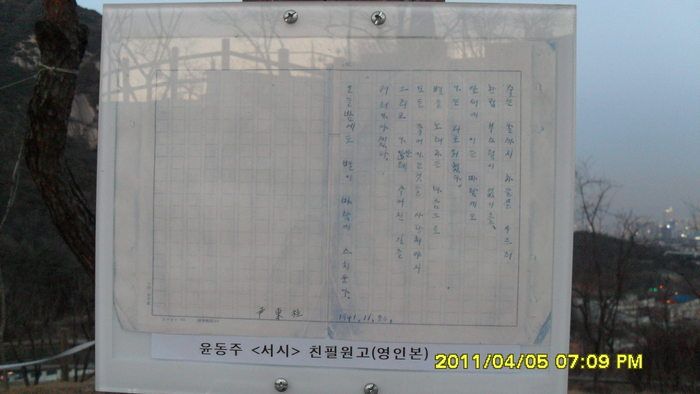 죽는 날까지 하늘을 우르러
한점 부끄럼이 없기를,
잎새에 이는 바람에도
나는 괴로워했다.
별을 노래하는 마음으로
모든 죽어가는것을 사랑해야지
그리고 나한테 주어진 길을
거러가야겠다.
오늘밤에도 별이 바람에 스치운다.
1941.11.20.
尹東柱
윤동주 <서시> 친필원고(영인본)
2011/04/05 07:09 PM